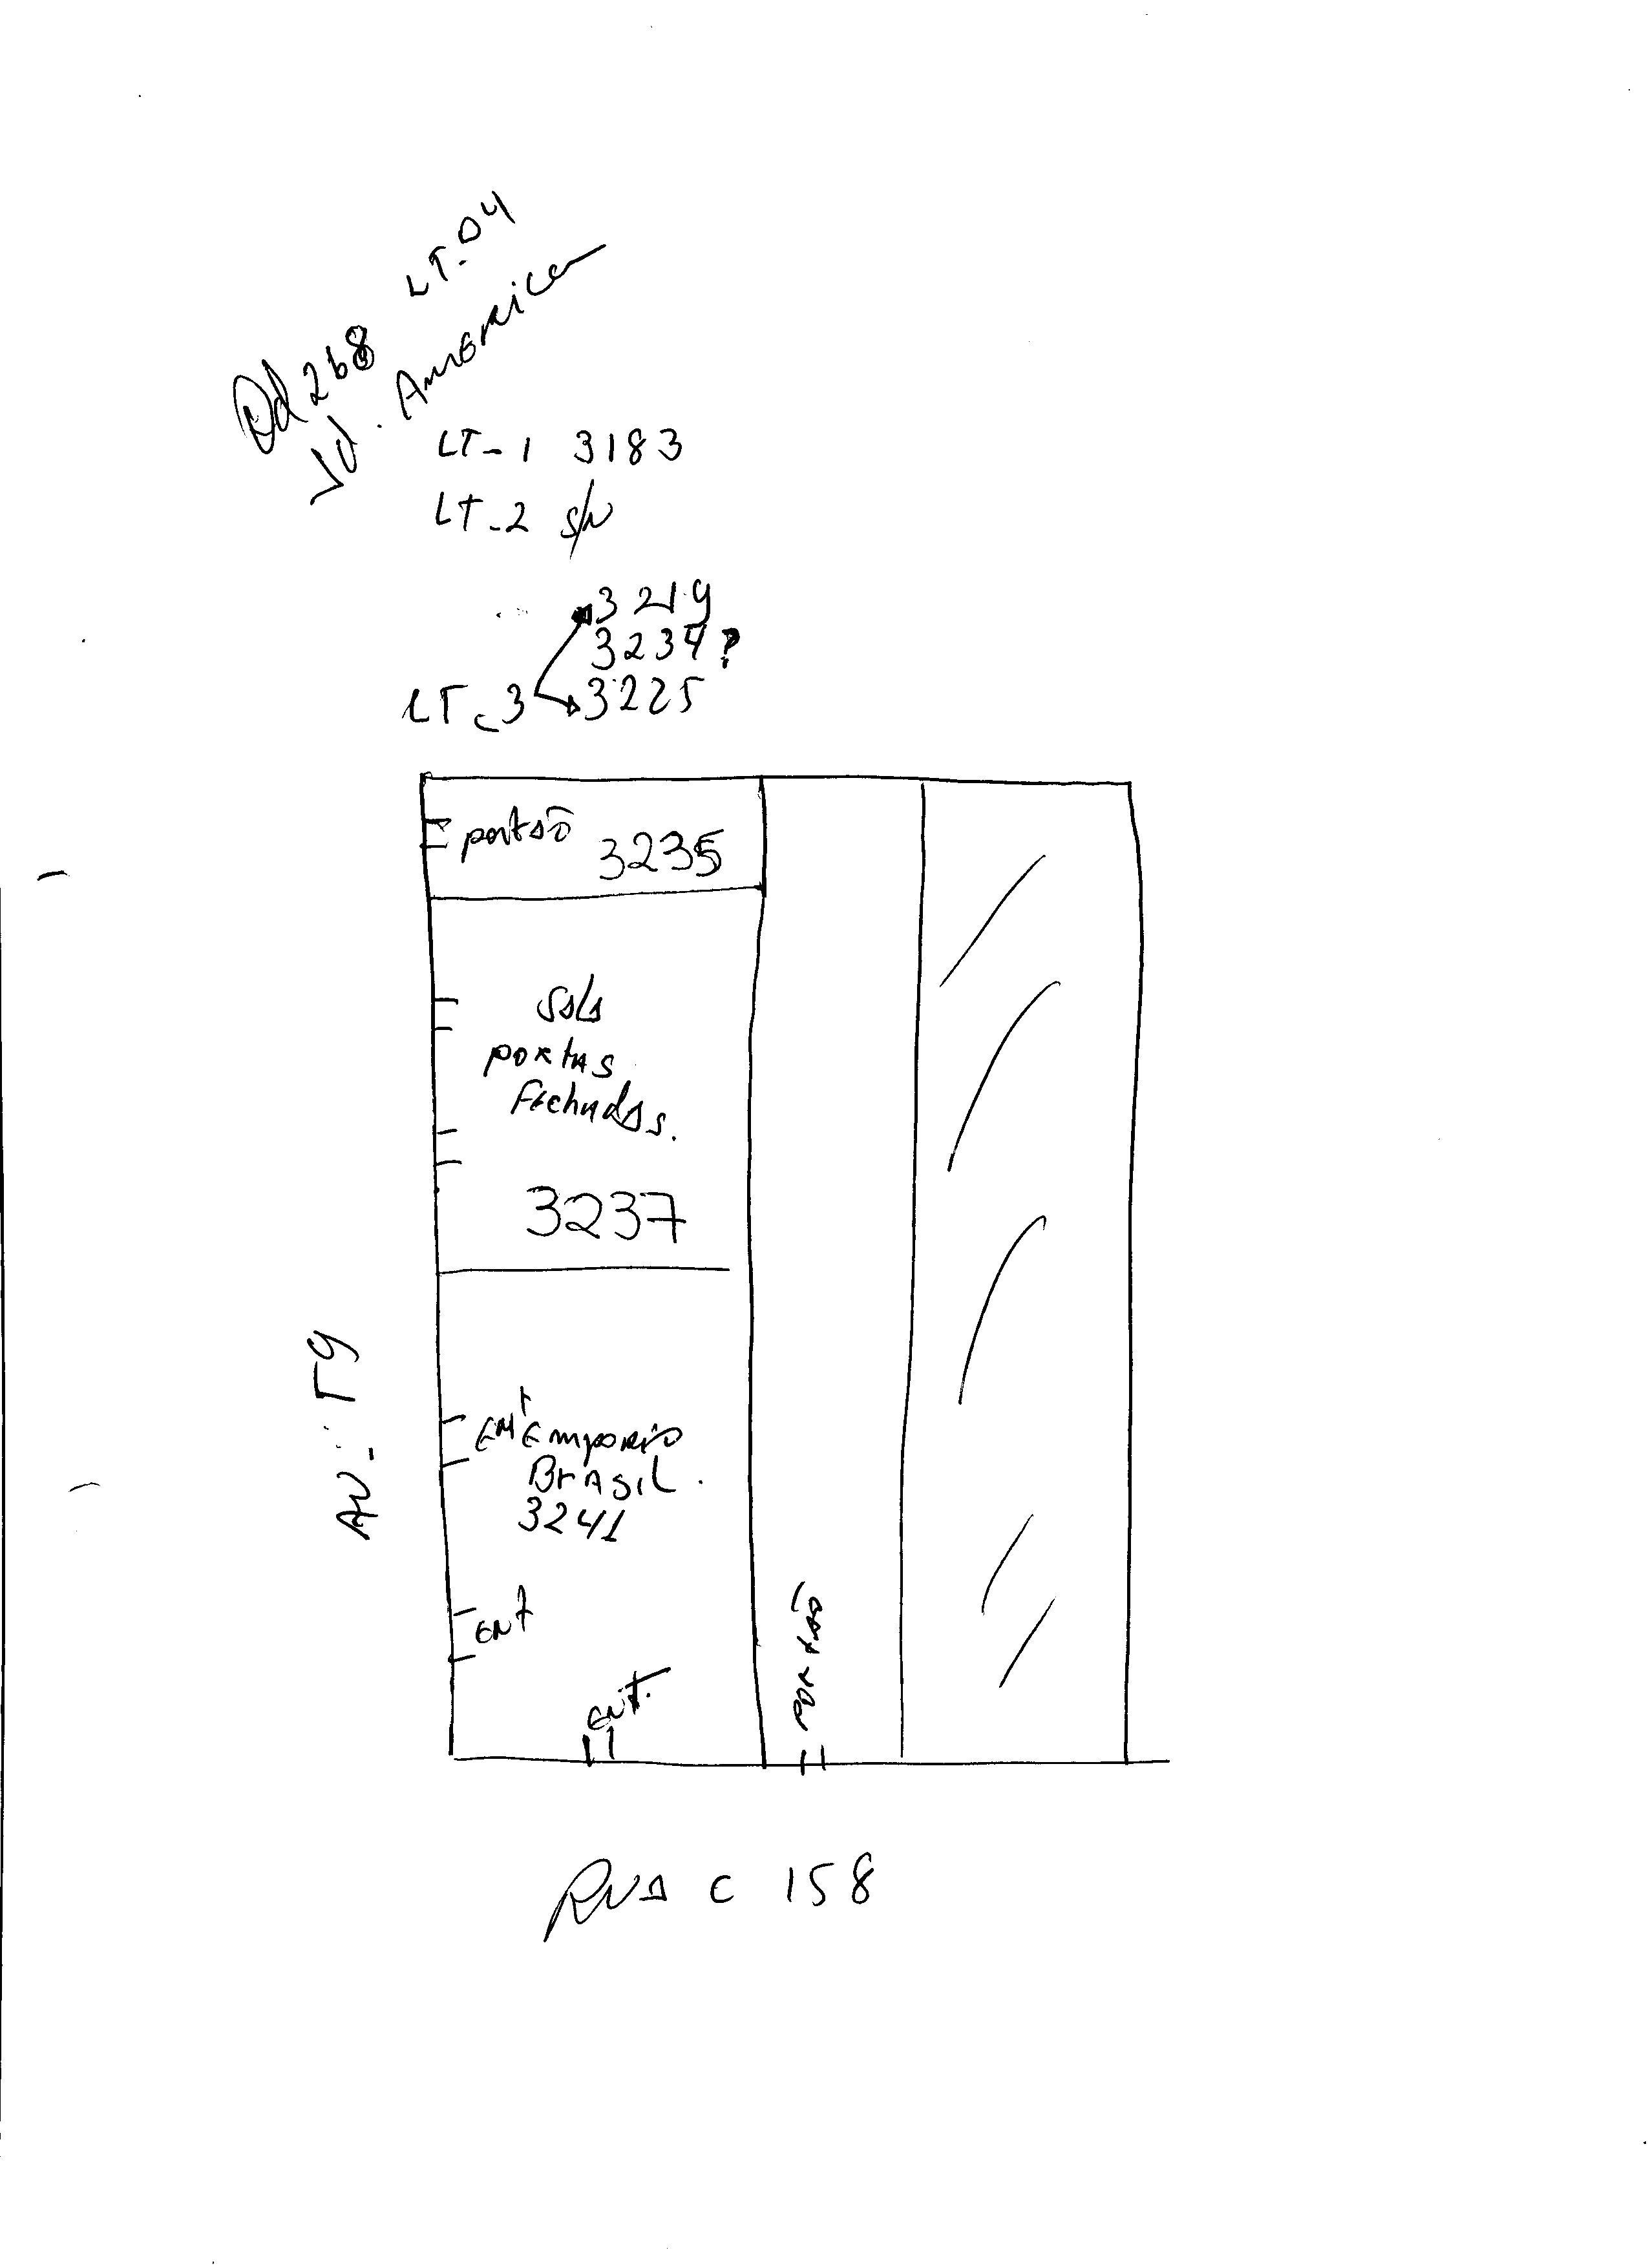 Qd 268 LT-04
Jd. America
LT-1 3183
LT-2 s/n
3219
3234?
LT-3 3225
portão 3235
Sala
portas
fechadas.
3237
Ent Emporio
Brasil.
3241
Ent
ent.
portão
AV. T9
Rua C 158